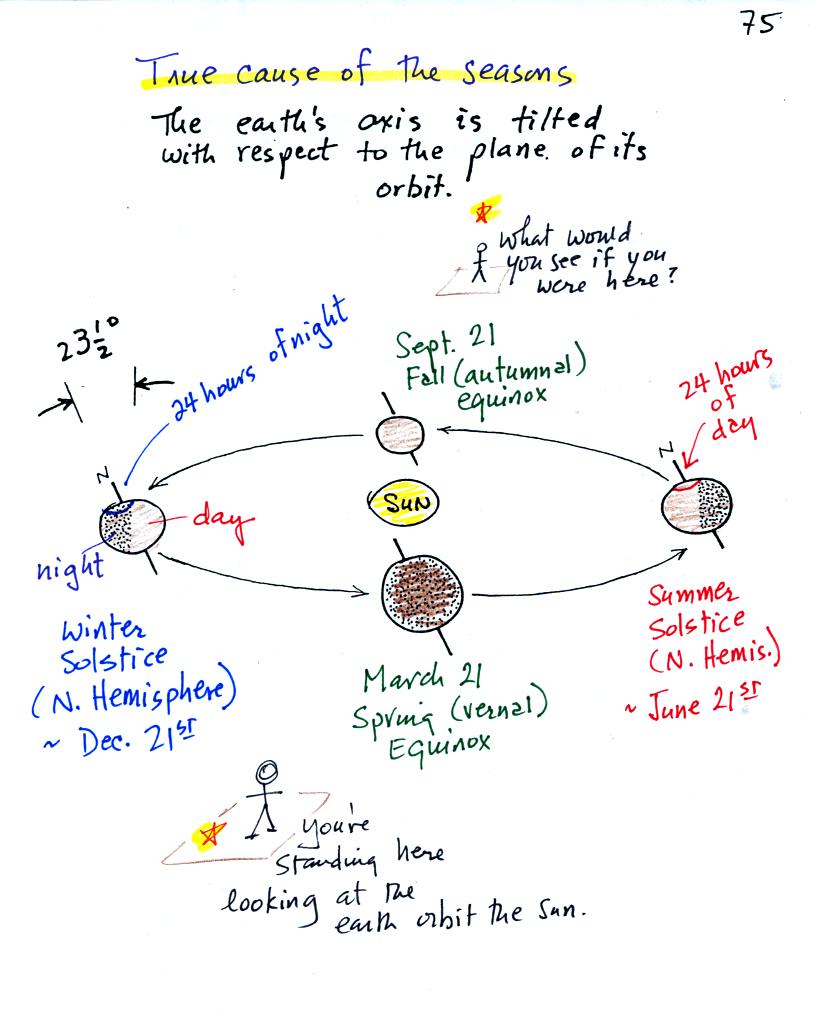 75
True cause of the seasons
The earth's axis is tilted
with respect to the plane of its
orbit.
What would
you see if you
were here?
23 1/2°
24 hours of night
Sept. 21
Fall (autumnal)
equinox
24 hours
of
day
N
N
SUN
day
night
Winter
Solstice
(N. Hemisphere)
~ Dec. 21st
March 21
Spring (vernal)
Equinox
Summer
Solstice
(N. Hemis.)
~ June 21st
you're
standing here
looking at the
earth orbit the sun.